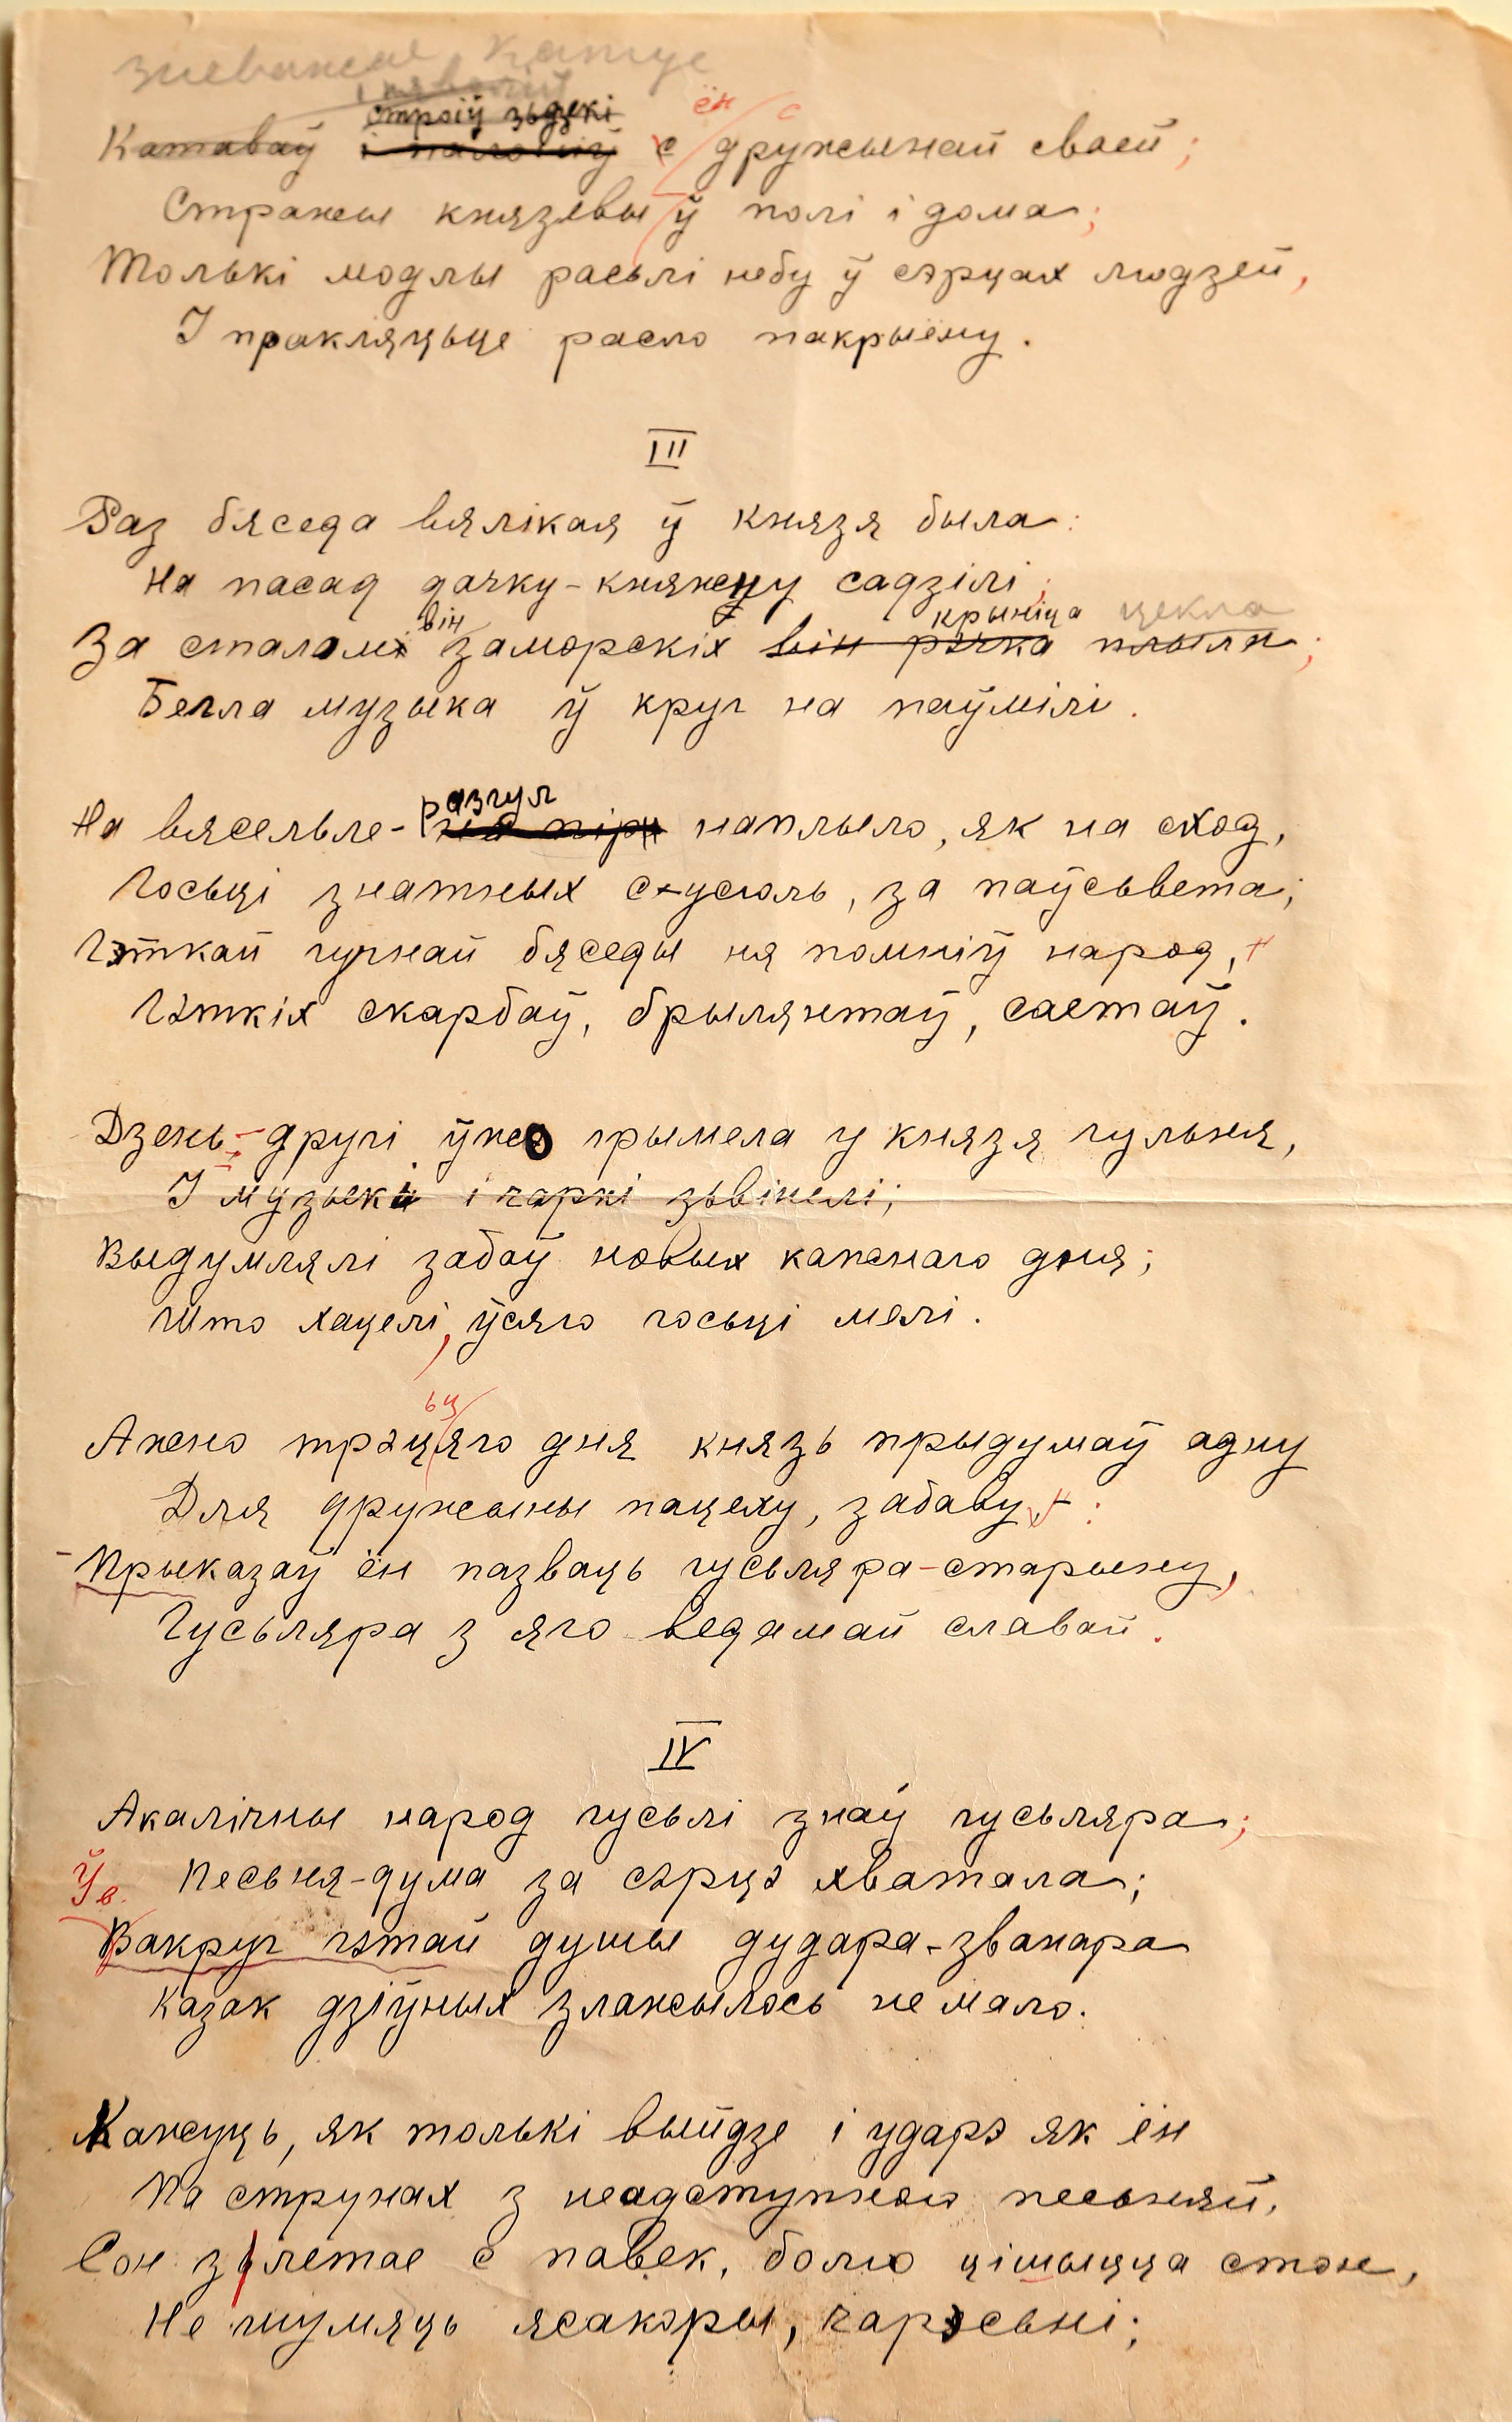 зневажае, катуе
і няволіў
строіў зьдзекі ён с
Катаваў і няволіў с дружынай сваей;
Стражы князевы ў полі і дома;
Толькі модлы расьлі небу ў сэрцах людзей,
І пракляцьце расло пакрыёму.
III
Раз бяседа вялікая ў князя была:
На пасад дачку-княжну садзілі;
він крыніца цекла
За сталамі заморскіх він рэчка плыла;
Бегла музыка ў круг на паўмілі.
разгул
На вясельле- на пір наплыло, як на сход,
Госьці знатных с усюль, за паўсьвета;
Гэткай гучнай бяседы ня помніў народ,
Гэткіх скарбаў, брылянтаў, саетаў.
Дзень-другі ўжо грымела у князя гульня,
І музыкі і чаркі зьвінелі;
Выдумлялі забаў новых кажнаго дня;
Што хацелі, ўсяго госьці мелі.
ьц
Ажно трэцяго дня князь прыдумаў адну
Для дружыны пацеху, забаву:
Прыказаў ён пазваць гусьляра-старыну,
Гусьляра з яго ведамай славай.
IV
Акалічны народ гусьлі знаў гусьляра;
Ўв. Песьня-дума за сэрцэ хватала;
Вакруг гэтай душы дудара-званара
Казак дзіўных злажылось не мало.
Кажуць, як толькі выйдзе і ударэ як ён
Па струнах з неадступною песьняй,
Сон зьлетае с павек, болю цішыцца стон,
Не шумяць ясакоры, чарэсьні;